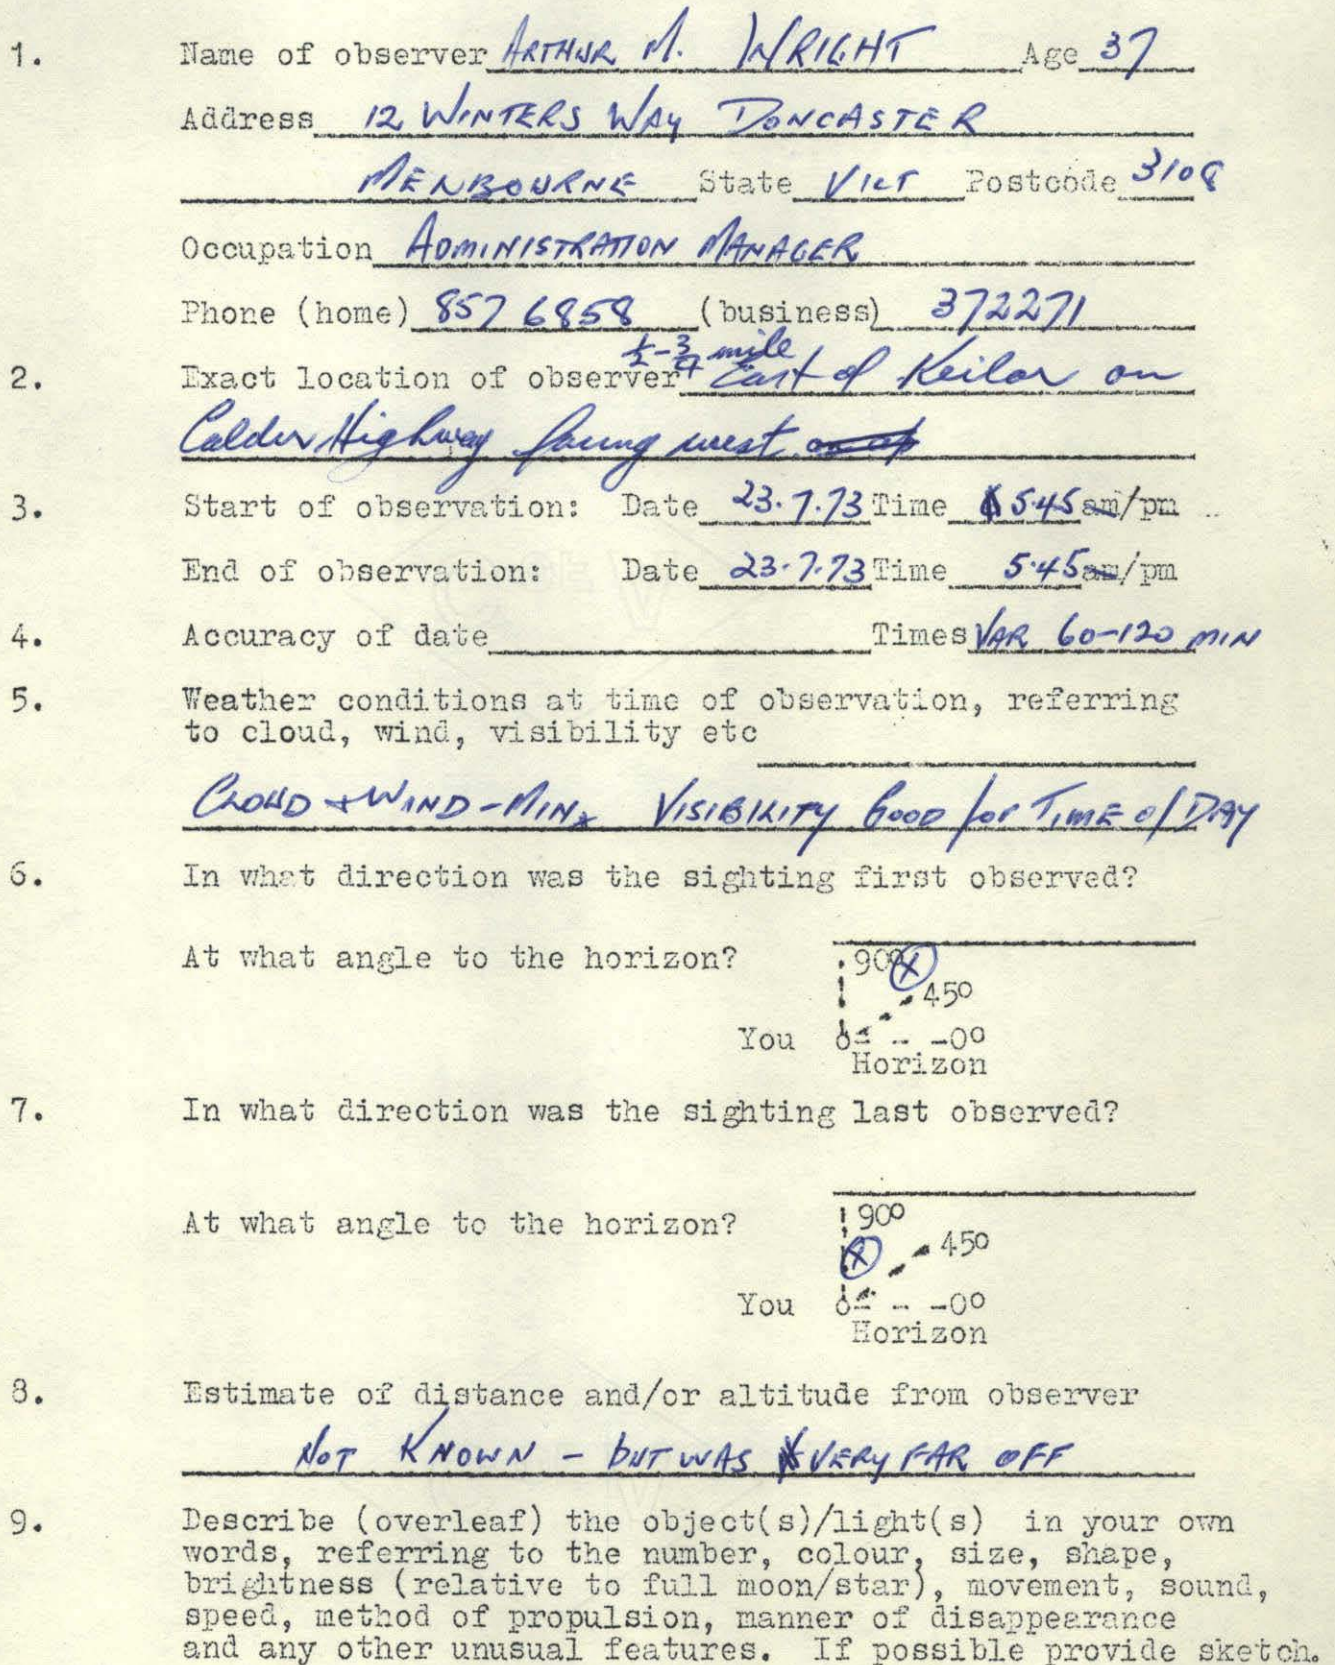 1. Name of observer ARTHUR M. WRIGHT Age 37
Address 12 WINTERS WAY DONCASTER
MELBOURNE State VICT Postcode 3108
Occupation ADMINISTRATION MANAGER
Phone (home) 857 6858 (business) 372271
½-¾ mile
2. Exact location of observer East of Keilor on
Calder Highway facing west
3. Start of observation: Date 23.7.73 Time 5.45 am/pm
End of observation: Date 23.7.73 Time 5.45 am/pm
4. Accuracy of date Times VAR 60-120 MIN
5. Weather conditions at time of observation, referring
to cloud, wind, visibility etc
CLOUD + WIND - MIN, VISIBILITY GOOD for TIME of DAY
6. In what direction was the sighting first observed?
At what angle to the horizon? 90° X
45°
You 0°
Horizon
7. In what direction was the sighting last observed?
At what angle to the horizon? 90°
X 45°
You 0°
Horizon
8. Estimate of distance and/or altitude from observer
NOT KNOWN - BUT WAS VERY FAR OFF
9. Describe (overleaf) the object(s)/light(s) in your own
words, referring to the number, colour, size, shape,
brightness (relative to full moon/star), movement, sound,
speed, method of propulsion, manner of disappearance
and any other unusual features. If possible provide sketch.